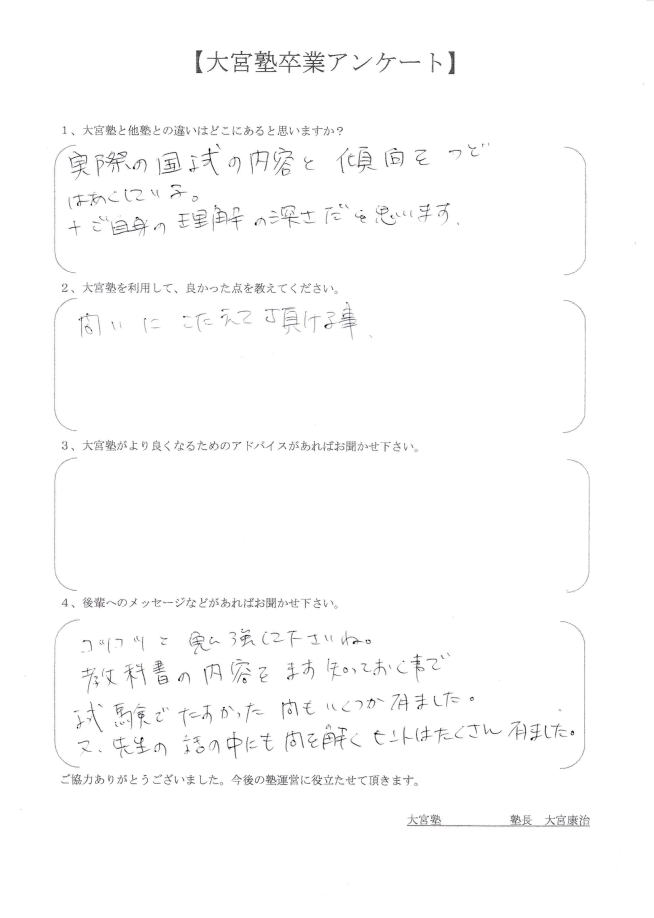 【大宮塾卒業アンケート】
1、大宮塾と他塾との違いはどこにあると思いますか？
実際の国試の内容と 傾向を つど
はあくしている。
+ご自身の理解の深さだと思います.
2、大宮塾を利用して、良かった点を教えてください。
問いに こたえて頂ける事.
3、大宮塾がより良くなるためのアドバイスがあればお聞かせ下さい。
4、後輩へのメッセージなどがあればお聞かせ下さい。
コツコツと勉強して下さいね。
教科書の内容をまず知っておく事で
試験でたすかった問もいくつか有ました。
又、先生の話の中にも問を解くヒントはたくさん有ました。
ご協力ありがとうございました。今後の塾運営に役立たせて頂きます。
大宮塾 塾長 大宮康治